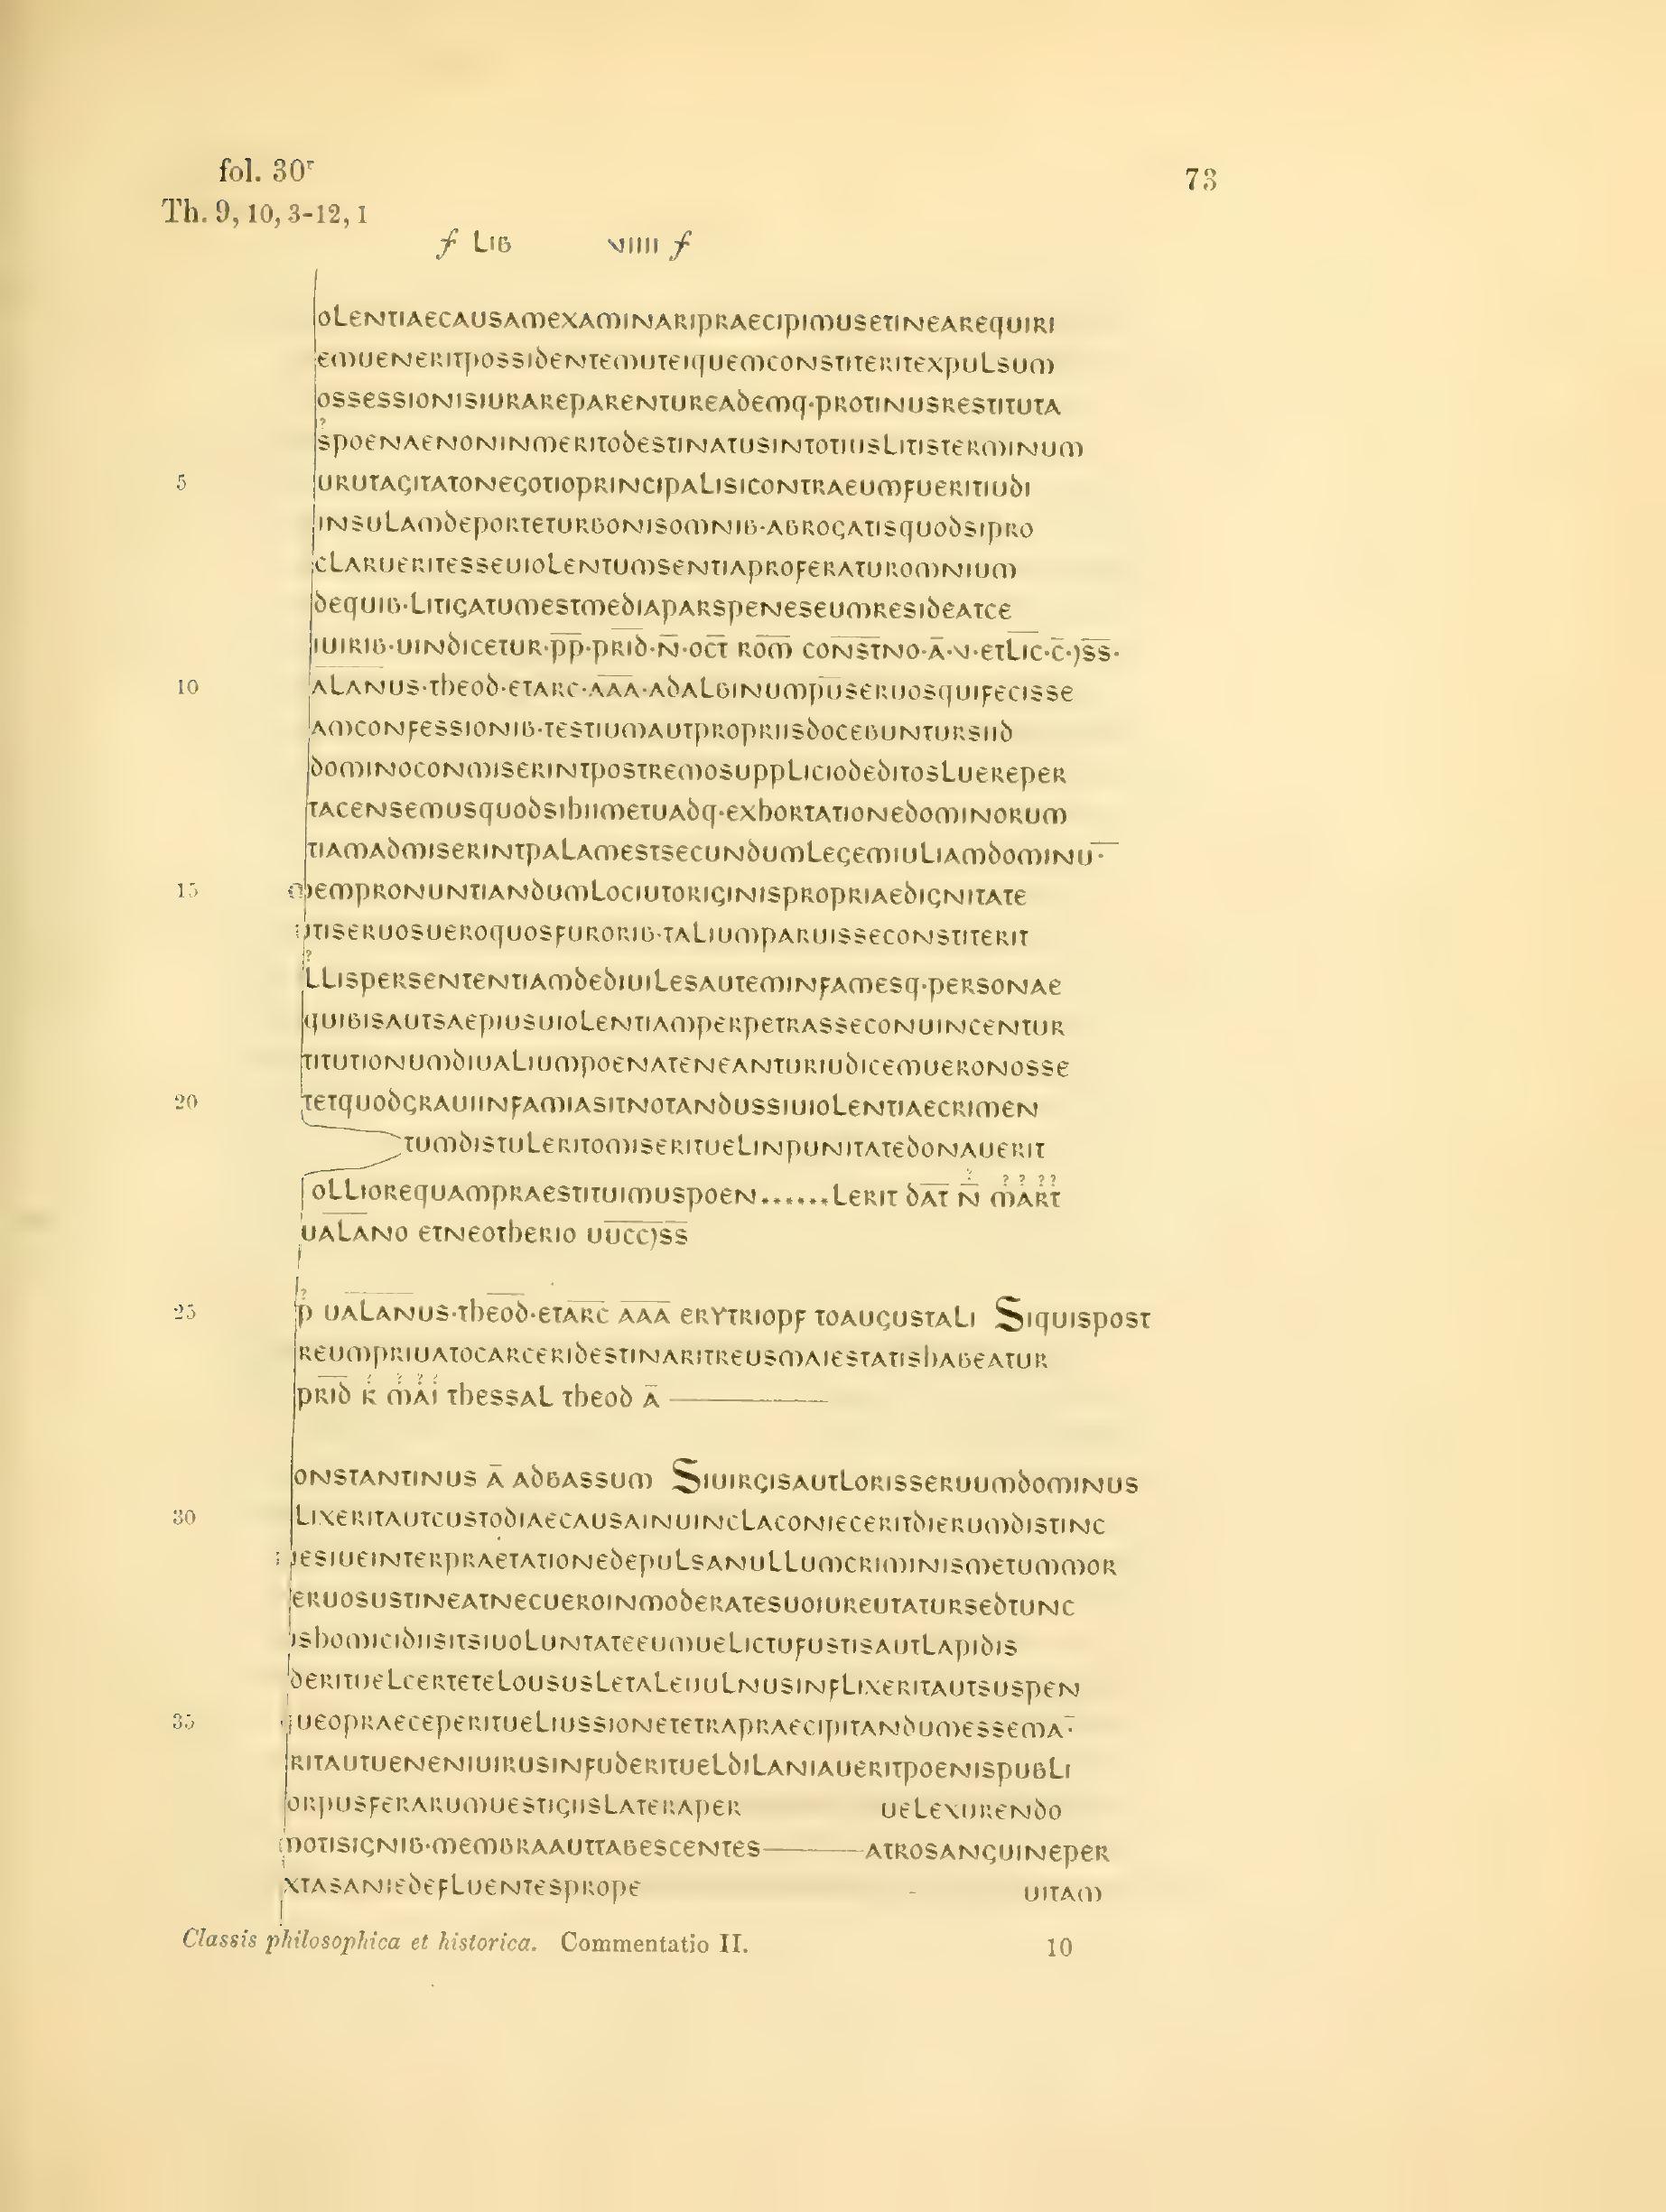 fol. 30r
73
Th. 9, 10, 3-12, 1
f LIB VIIII f
OLENTIAECAUSAMEXAMINARIPRAECIPIMUSETINEAREQUIRI
EMUENERITPOSSIDENTEMUTEIQUEMCONSTITERITEXPULSUM
OSSESSIONISIURAREPARENTUREADEMQ·PROTINUSRESTITUTA
?
SPOENAENONINMERITODESTINATUSINTOTIUSLITISTERMINUM
5 URUTAGITATONEGOTIOPRINCIPALISICONTRAEUMFUERITIUDI
INSULAMDEPORTETURBONISOMNIB·ABROGATISQUODSIPRO
CLARUERITESSEUIOLENTUMSENTIAPROFERATUROMNIUM
DEQUIB·LITIGATUMESTMEDIAPARSPENESEUMRESIDEATCE
IUIRIB·UINDICETUR·P̅P̅·P̅R̅I̅D̅·N̅·OC̅T̅ RO̅M̅ CO̅N̅S̅T̅NO·A̅·V·ETL̅I̅C̅·C̅·)S̅S̅·
10 ALANUS·THEOD·ETARC·A̅A̅A̅·ADALBINUMPU̅SERUOSQUIFECISSE
AMCONFESSIONIB·TESTIUMAUTPROPRIISDOCEBUNTURSIID
DOMINOCONMISERINTPOSTREMOSUPPLICIODEDITOSLUEREPER
TACENSEMUSQUODSIHIIMETUADQ·EXHORTATIONEDOMINORUM
TIAMADMISERINTPALAMESTSECUNDUMLEGEMIULIAMDOMINU̅·
15 MEMPRONUNTIANDUMLOCIUTORIGINISPROPRIAEDIGNITATE
UTISERUOSUEROQUOSFURORIB·TALIUMPARUISSECONSTITERIT
?
LLISPERSENTENTIAMDEDIUILESAUTEMINFAMESQ·PERSONAE
QUIBISAUTSAEPIUSUIOLENTIAMPERPETRASSECONUINCENTUR
TITUTIONUMDIUALIUMPOENATENEANTURIUDICEMUERONOSSE
20 TETQUODGRAUIINFAMIASITNOTANDUSSIUIOLENTIAECRIMEN
TUMDISTULERITOMISERITUELINPUNITATEDONAUERIT
? ? ? ? ?
OLLIOREQUAMPRAESTITUIMUSPOEN.......LERIT DA̅T̅ N̅ MART
UALANO ETNEOTHERIO UU̅C̅C̅)S̅S̅
?
25 P UALANUS·THEOD·ETARC A̅A̅A̅ ERYTRIOPF TOAUGUSTALI SIQUISPOST
REUMPRIUATOCARCERIDESTINARITREUSMAIESTATISHABEATUR
? ? ? ?
P̅R̅I̅D̅ K MAI THESSAL THEOD A̅
ONSTANTINUS A̅ ADBASSUM SIUIRGISAUTLORISSERUUMDOMINUS
30 LIXERITAUTCUSTODIAECAUSAINUINCLACONIECERITDIERUMDISTINC
IESIUEINTERPRAETATIONEDEPULSANULLUMCRIMINISMETUMMOR
ERUOSUSTINEATNECUEROINMODERATESUOIUREUTATURSEDTUNC
ISHOMICIDIISITSIUOLUNTATEEUMUELICTUFUSTISAUTLAPIDIS
DERITUELCERTETELOUSUSLETALEUULNUSINFLIXERITAUTSUSPEN
35 QUEOPRAECEPERITUELIUSSIONETETRAPRAECIPITANDUMESSEMA·̅
RITAUTUENENIUIRUSINFUDERITUELDILANIAUERITPOENISPUBLI
ORPUSFERARUMUESTIGIISLATERAPER UELEXURENDO
MOTISIGNIB·MEMBRAAUTTABESCENTES——ATROSANGUINEPER
XTASANIEDEFLUENTESPROPE - UITAM
Classis philosophica et historica. Commentatio II. 10